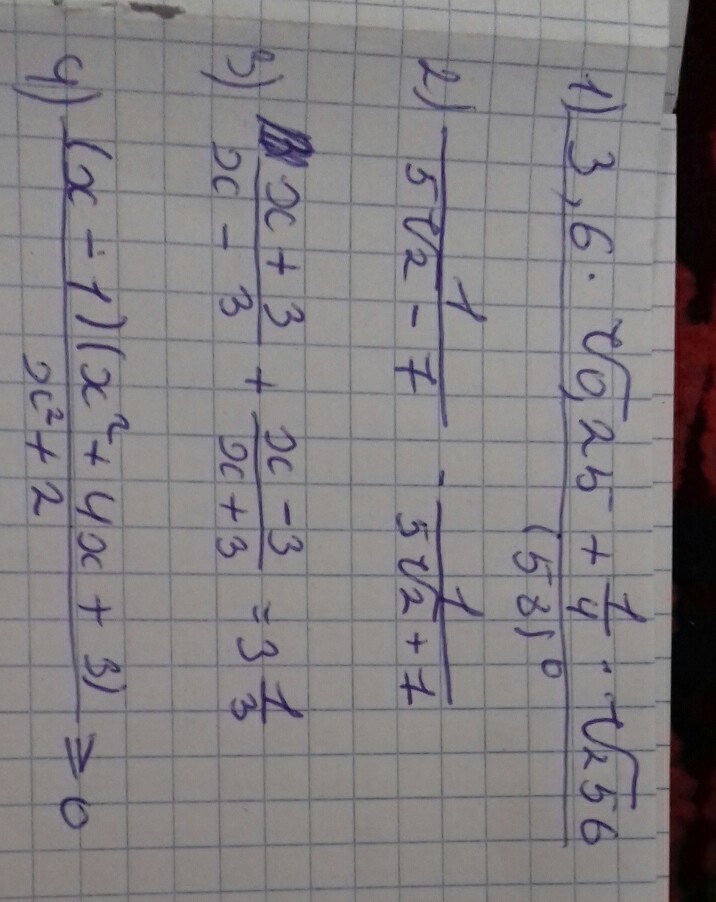 1) (3,6 · √0,25 + 1/4 · √256) / (58)⁰
2) 1/(5√2 - 7) - 1/(5√2 + 7)
3) (x + 3)/(x - 3) + (x - 3)/(x + 3) = 3 1/3
4) (x - 1)(x² + 4x + 3) / (x² + 2) ≥ 0